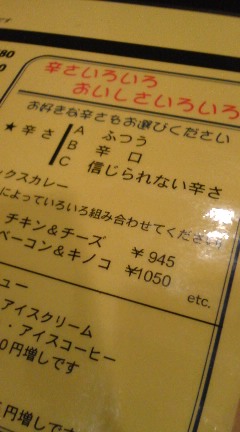 80
0
辛さいろいろ
おいしさいろいろ
お好きな辛さもお選びください
★辛さ
A ふつう
B 辛口
C 信じられない辛さ
ックスカレー
によっていろいろ組み合わせてください
チキン&チーズ ¥945
ベーコン&キノコ ¥1050
etc.
ュー
アイスクリーム
・アイスコーヒー
0円増しです
円増しです